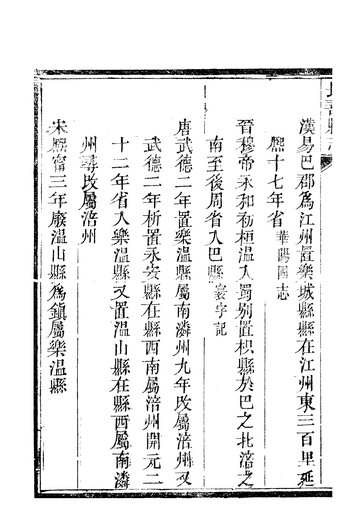 漢易巴郡爲江州置樂城縣縣在江州東三百里延
熙十七年省華陽國志
晉穆帝永和初桓溫入蜀别置枳縣於巴之北涪之
南至後周省入巴縣寰宇記
唐武德二年置樂溫縣屬南潾州九年改屬涪州又
武德二年析置永安縣在縣西南屬涪州開元二
十二年省入樂溫縣又置溫山縣在縣西屬南潾
州尋改屬涪州
宋熙甯三年廢溫山縣爲鎮屬樂溫縣